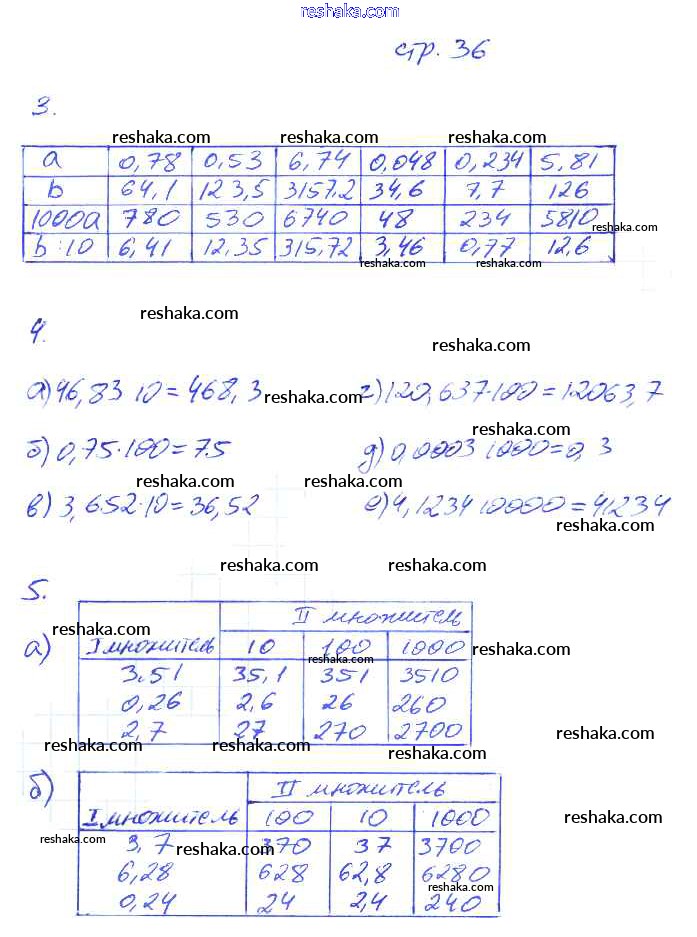 reshaka.com
стр. 36
3.
reshaka.com reshaka.com reshaka.com reshaka.com
a 0,78 0,53 6,74 0,048 0,234 5,81
b 64,1 123,5 3157,2 34,6 7,7 126
1000a 780 530 6740 48 234 5810
b:10 6,41 12,35 315,72 3,46 0,77 12,6
reshaka.com reshaka.com
reshaka.com
4.
reshaka.com
а) 46,83 10=468,3 г) 120,637·100=12063,7
reshaka.com reshaka.com
reshaka.com
б) 0,75·100=75 д) 0,0003 1000=0,3
reshaka.com
в) 3,652·10=36,52 е) 4,1234 10000=41234
reshaka.com
reshaka.com
5.
reshaka.com
II множитель
а) I множитель 10 100 1000
reshaka.com reshaka.com
3,51 35,1 351 3510
0,26 2,6 26 260
2,7 27 270 2700
reshaka.com reshaka.com reshaka.com
б) II множитель
I множитель 100 10 1000
reshaka.com
reshaka.com reshaka.com reshaka.com
3,7 370 37 3700
6,28 628 62,8 6280
reshaka.com
0,24 24 2,4 240